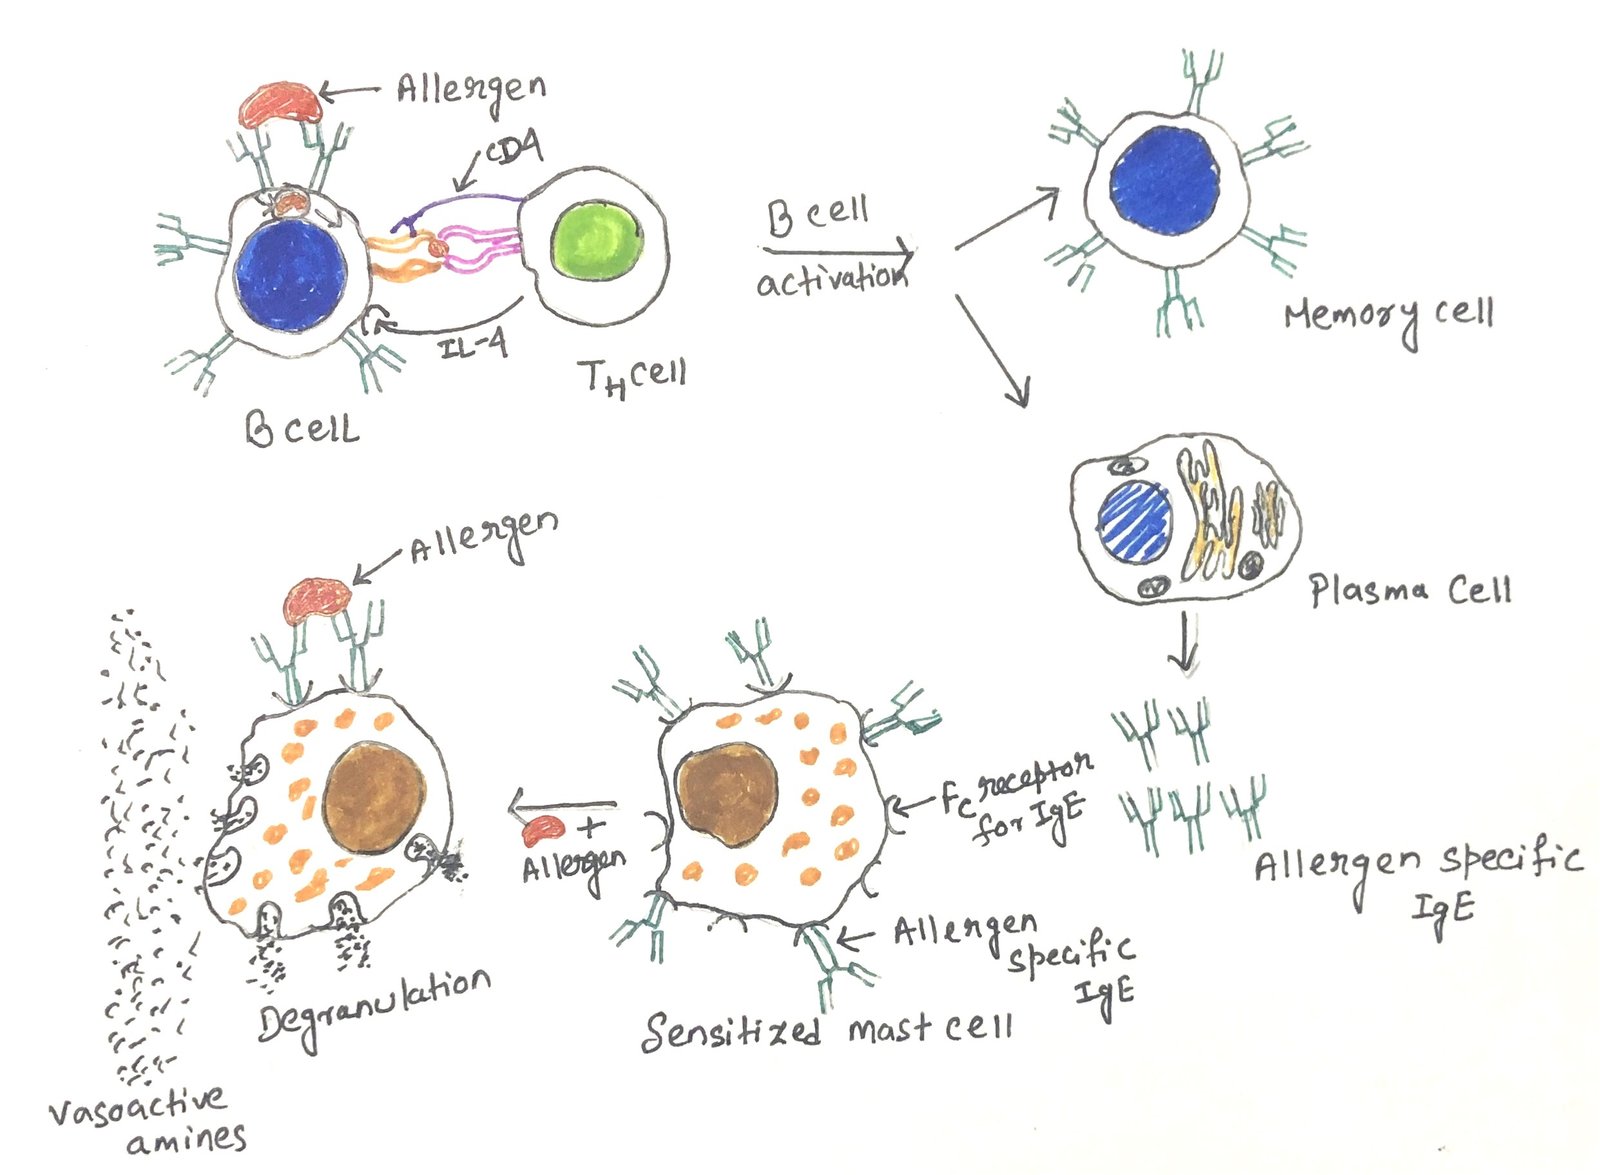 Allergen
CD4
IL-4
B cell
TH cell
B cell
activation
Memory cell
Plasma cell
Allergen specific
IgE
Fc receptor
for IgE
Allergen
specific
IgE
Sensitized mast cell
+
Allergen
Allergen
Degranulation
Vasoactive
amines